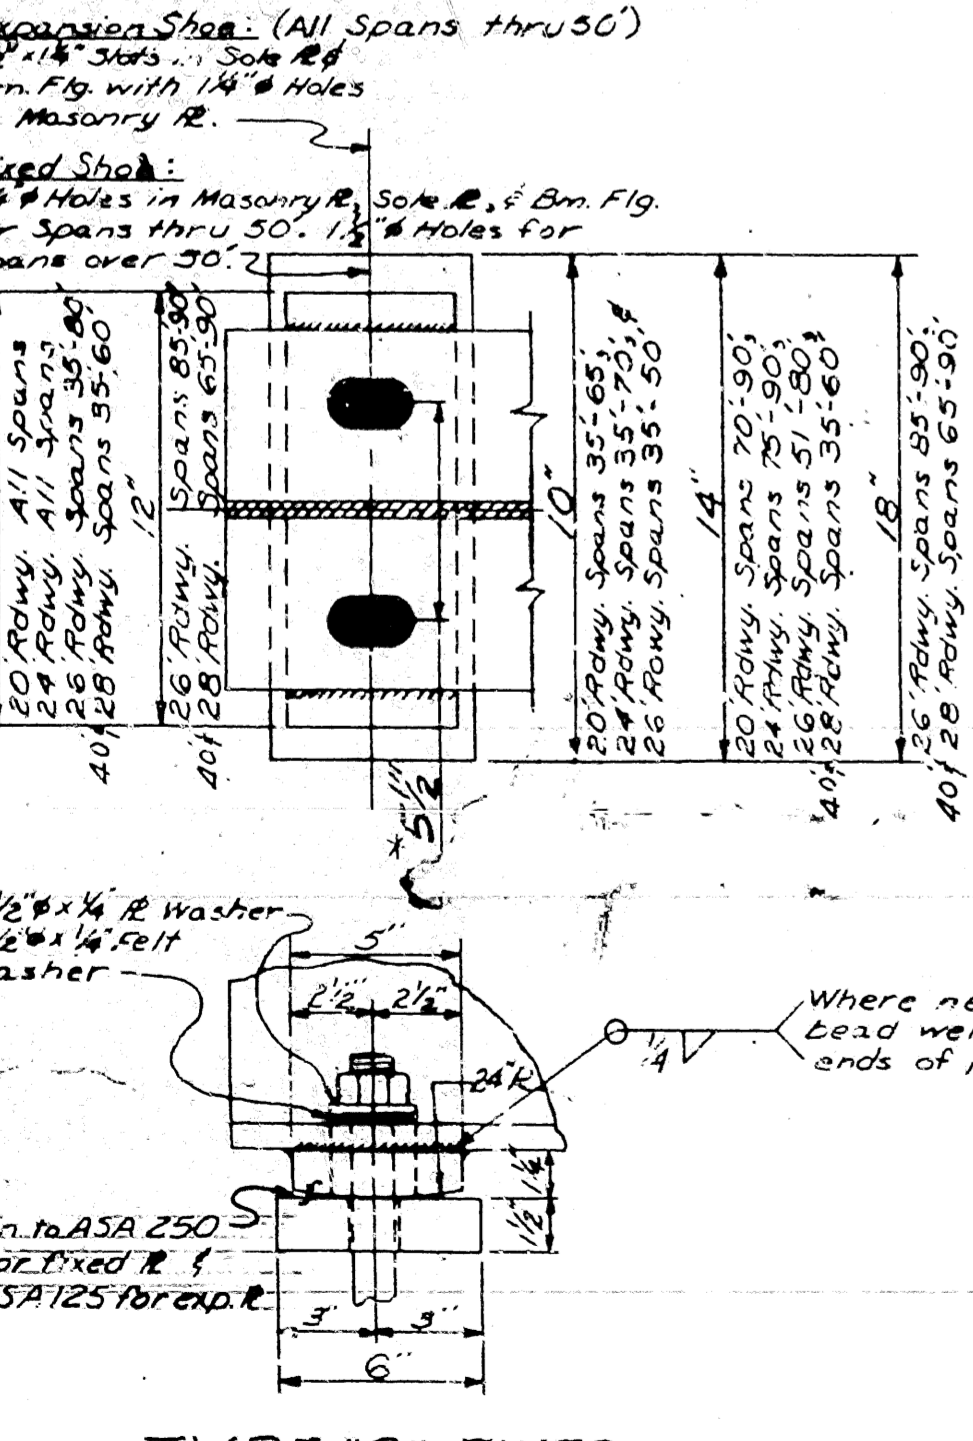 xpansion Shoe: (All Spans thru 50')
2" x 1¼" Slots in Sole ℞ &
m. Flg. with 1¼" ø Holes
Masonry ℞.
ixed Shoe:
¼" ø Holes in Masonry ℞, Sole ℞, & Bm. Flg.
r Spans thru 50'. 1½" ø Holes for
pans over 50'.
20' Rdwy. All Spans
24' Rdwy. All Spans
26' Rdwy. Spans 35'-80'
40' & 28' Rdwy. Spans 35'-60'
12"
26' Rdwy. Spans 85'-90'
40' & 28' Rdwy. Spans 65'-90'
10"
20' Rdwy. Spans 35'-65';
24' Rdwy. Spans 35'-70', &
26' Rdwy. Spans 35'-50'
14"
20' Rdwy. Spans 70'-90';
24' Rdwy. Spans 75'-90';
26' Rdwy. Spans 51'-80' &
40' & 28' Rdwy. Spans 35'-60'
18"
26' Rdwy. Spans 85'-90';
40' & 28' Rdwy. Spans 65'-90'
* 5½"
½" ø x ¼" ℞ Washer
½" ø x ¼" Felt
asher
5"
2½" 2½"
24" R
Where ne
bead wel
ends of
¼
1¼"
1½"
n to ASA 250
or fixed ℞ &
SA 125 for exp. ℞
3" 3"
6"